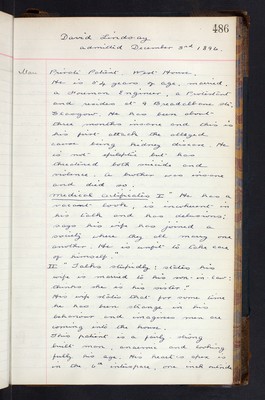 486
David Lindsay
admitted December 3rd 1896.
Private Patient. West House.
He is 54 years of age, married,
a Foreman Engineer, a Protestant
and resides at 9 Breadalbane St.
Glasgow. He has been about
three months insane and this is
his first attack the alleged
cause being kidney disease. He
is not epileptic but has
threatened both suicide and
violence. A brother was insane
and died so.
Medical Certificates I "He has a
vacant look, is incoherent in
his talk and has delusions;
says his wife has joined a
society where they all marry one
another. He is unfit to take care
of himself."
II "Talks stupidly; states his
wife is married to his son-in-law:
thinks she is his sister."
His wife states that for some time
he has been strange in his
behaviour and imagines men are
coming into the house.
This patient is a fairly strong
built man, anaemic and looking
fully his age. His heart's apex is
in the 6th interspace, one inch outside